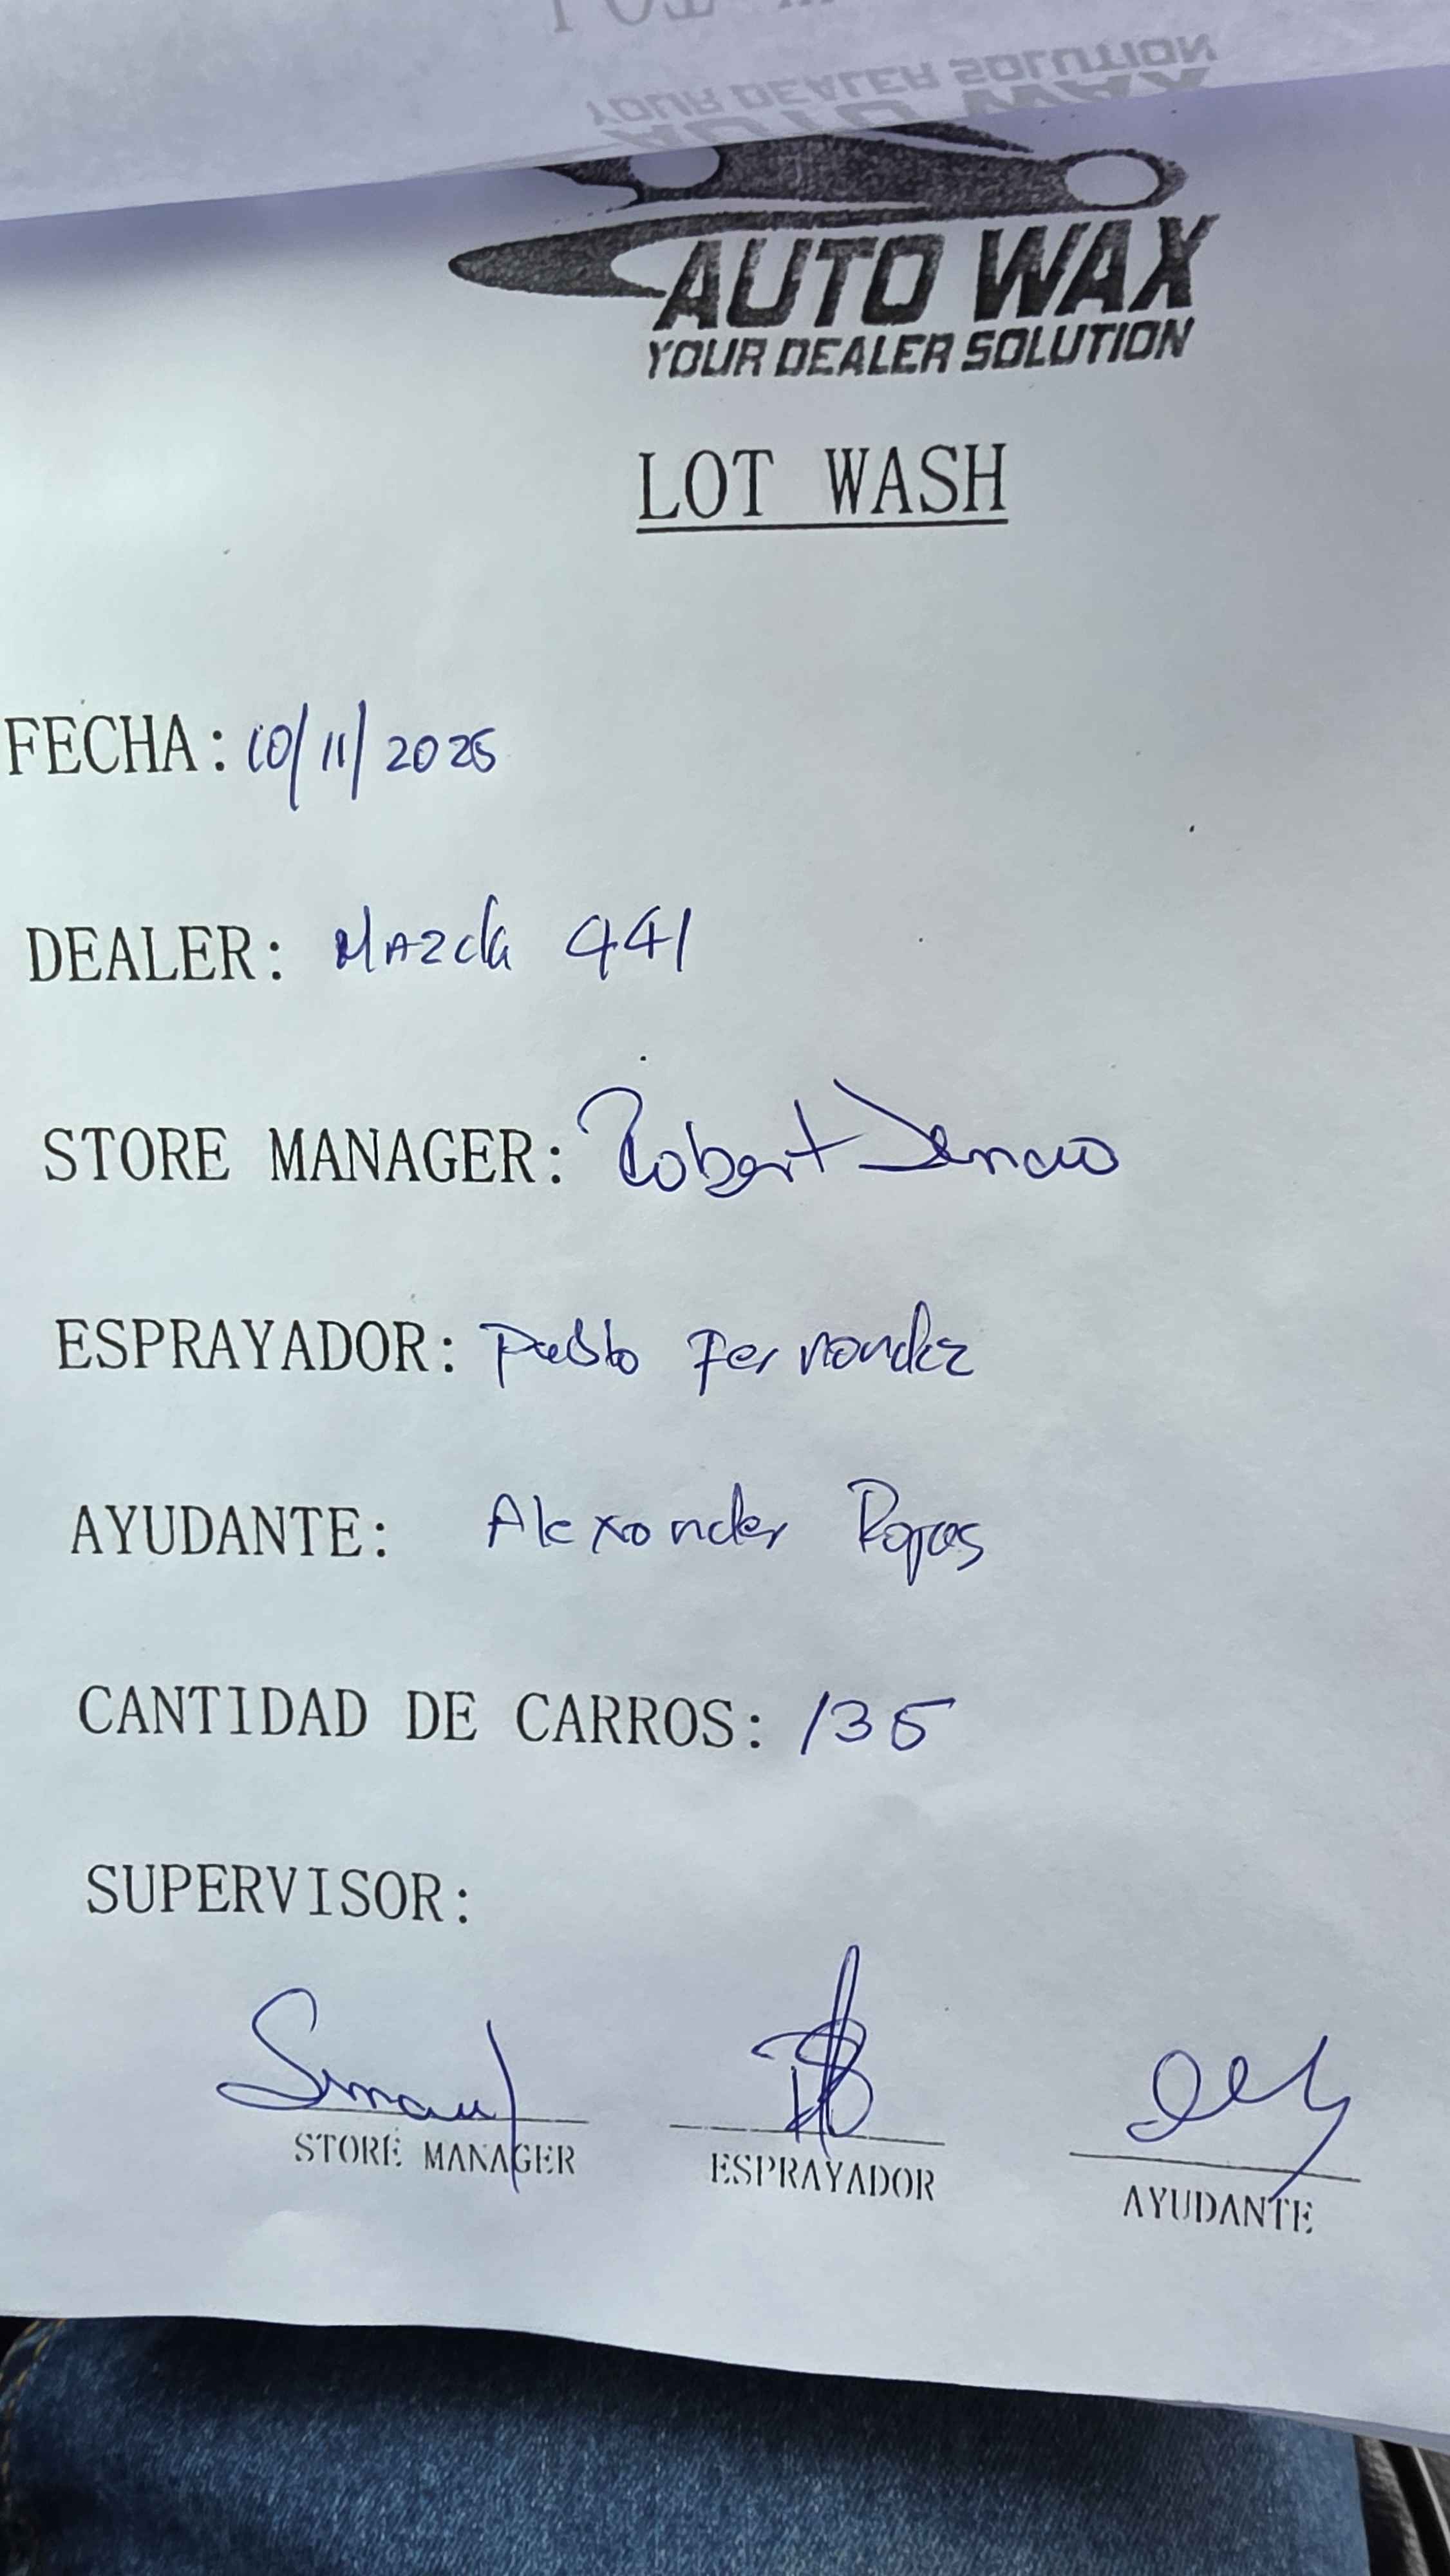 YOUR DEALER SOLUTION
AUTO WAX
YOUR DEALER SOLUTION
LOT WASH
FECHA: 10/11/2025
DEALER: Mazda 441
STORE MANAGER: Robert
ESPRAYADOR: Pablo Fernandez
AYUDANTE: Alexander Rojas
CANTIDAD DE CARROS: 135
SUPERVISOR:
STORE MANAGER ESPRAYADOR AYUDANTE